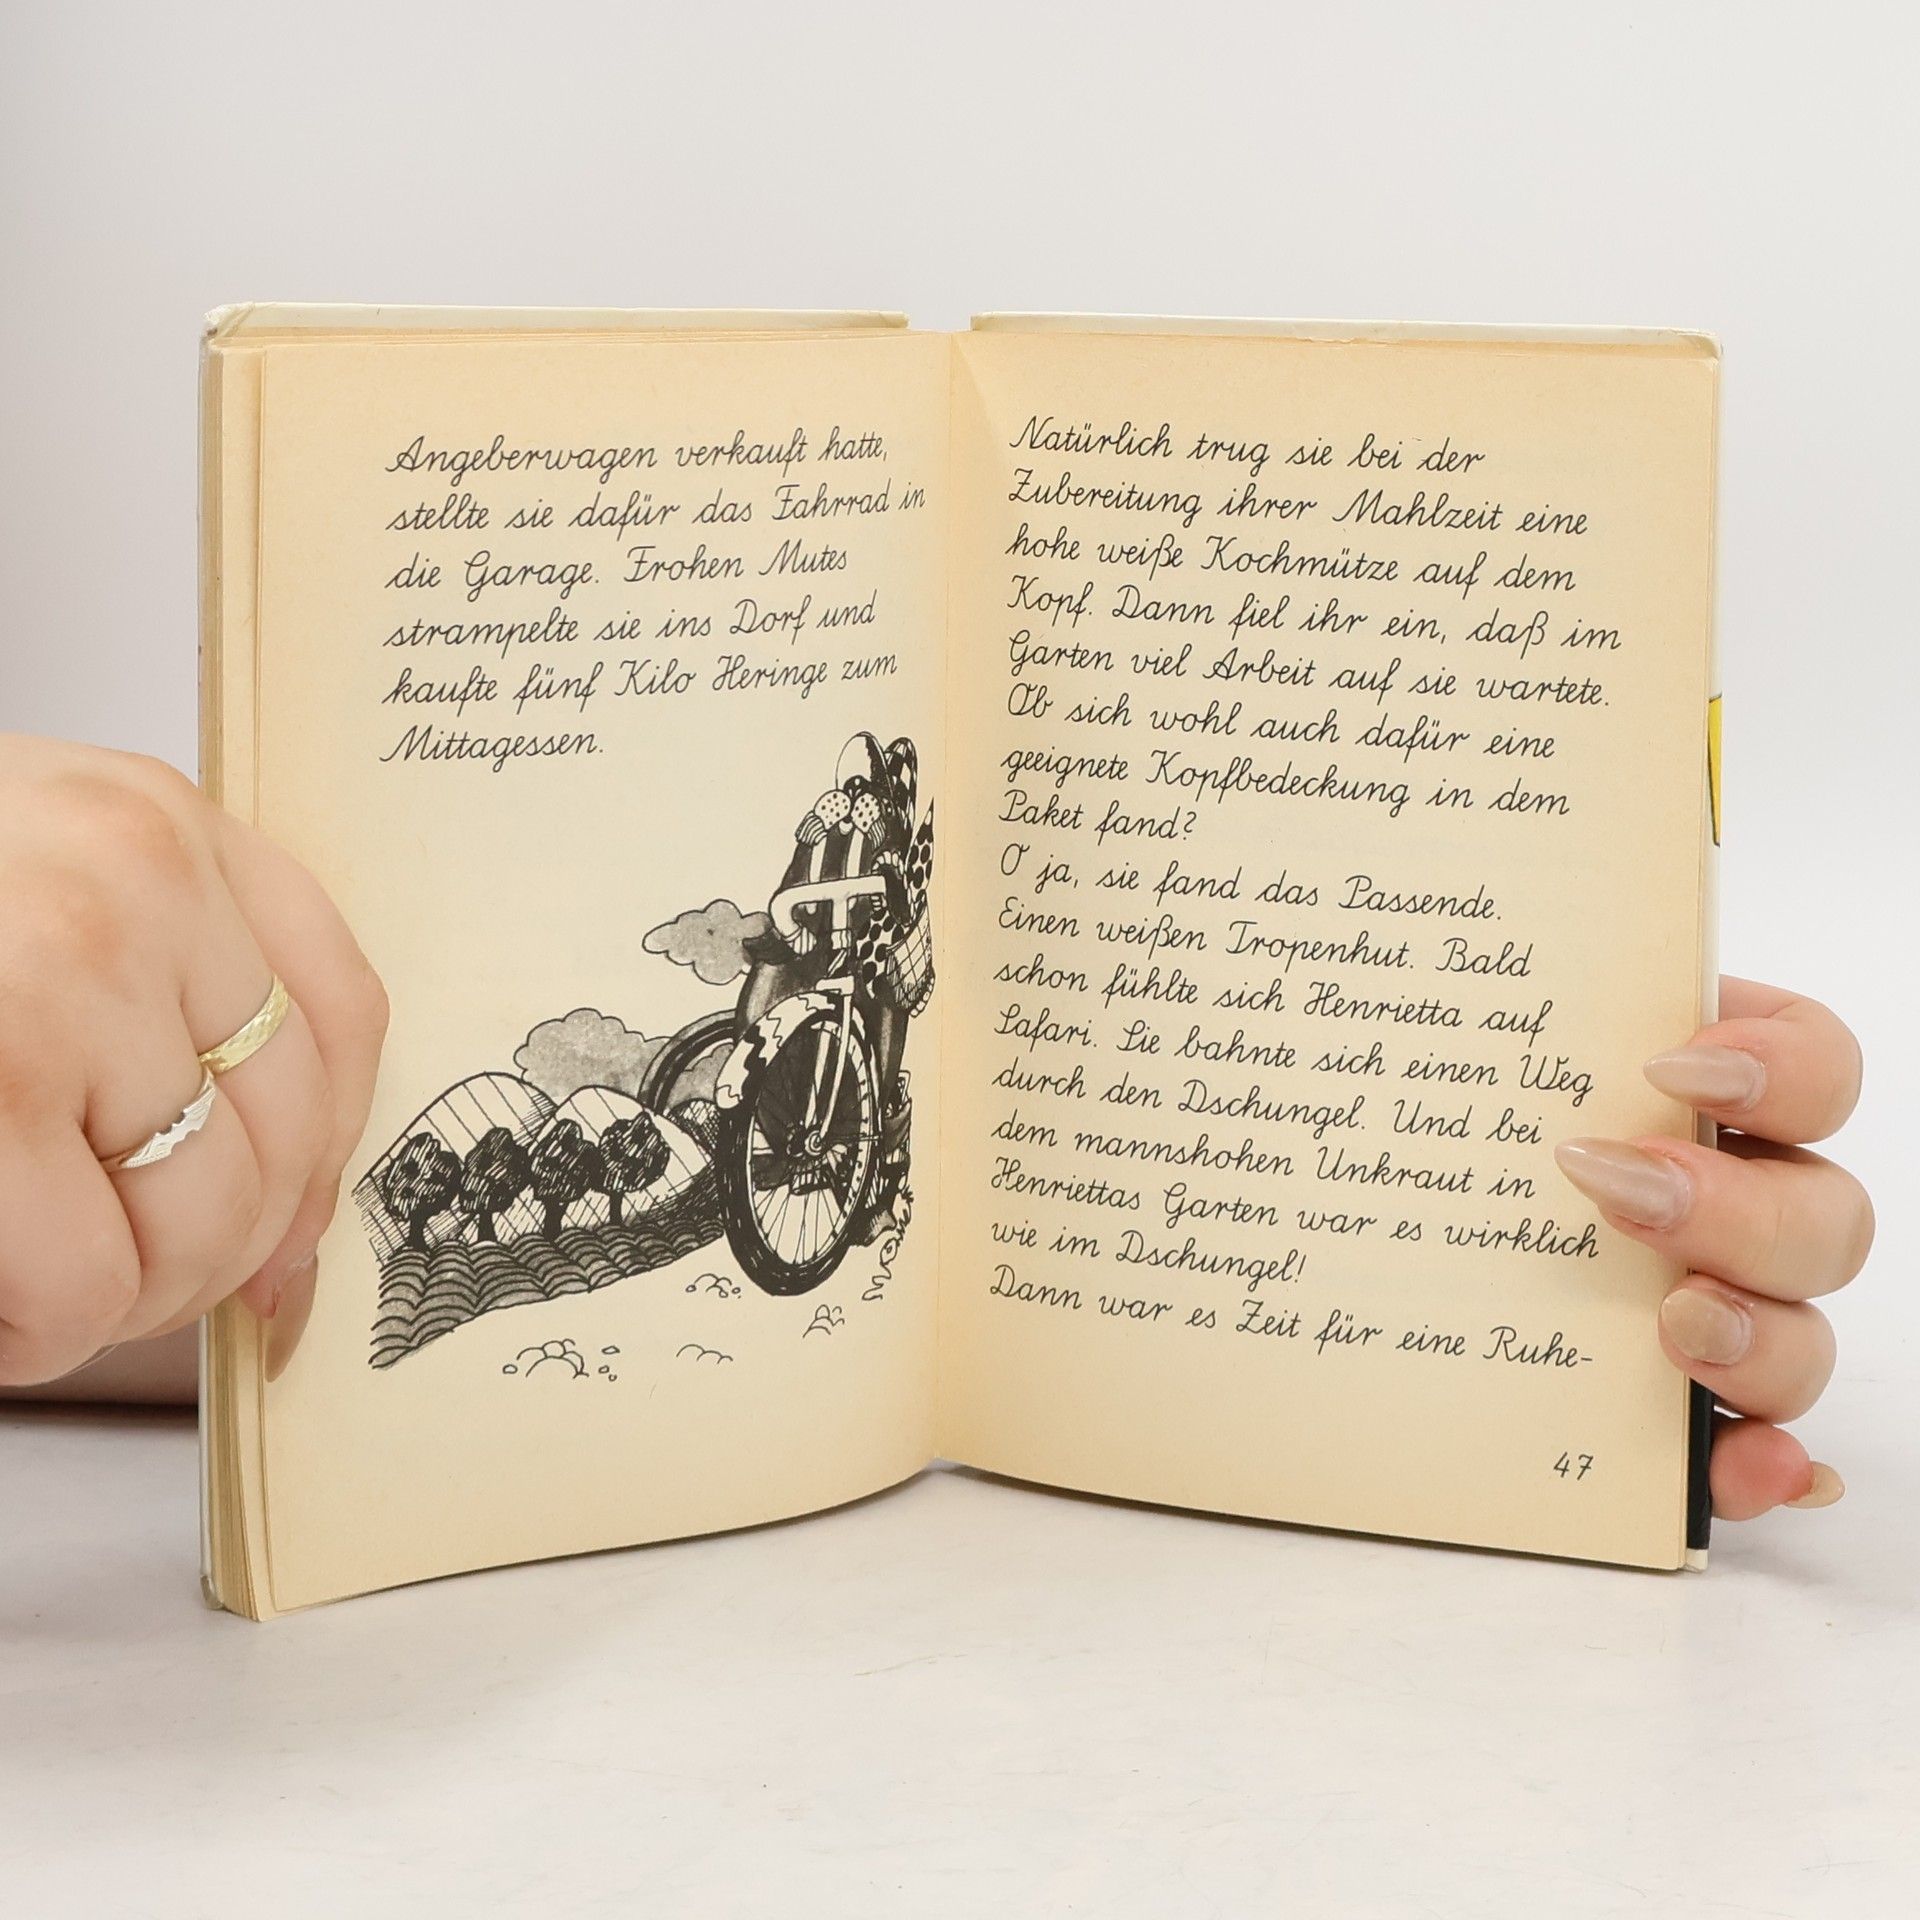 Angeberwagen verkauft hatte,
stellte sie dafür das Fahrrad in
die Garage. Frohen Mutes
strampelte sie ins Dorf und
kaufte fünf Kilo Heringe zum
Mittagessen.
Natürlich trug sie bei der
Zubereitung ihrer Mahlzeit eine
hohe weiße Kochmütze auf dem
Kopf. Dann fiel ihr ein, daß im
Garten viel Arbeit auf sie wartete.
Ob sich wohl auch dafür eine
geeignete Kopfbedeckung in dem
Paket fand?
O ja, sie fand das Passende.
Einen weißen Tropenhut. Bald
schon fühlte sich Henrietta auf
Safari. Sie bahnte sich einen Weg
durch den Dschungel. Und bei
dem mannshohen Unkraut in
Henriettas Garten war es wirklich
wie im Dschungel!
Dann war es Zeit für eine Ruhe-
47